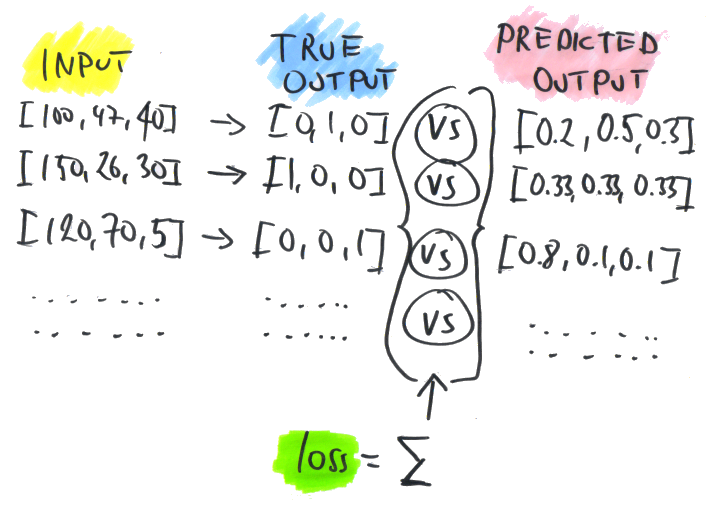 INPUT
TRUE OUTPUT
PREDICTED OUTPUT
[100, 47, 40] → [0, 1, 0] VS [0.2, 0.5, 0.3]
[150, 26, 30] → [1, 0, 0] VS [0.33, 0.33, 0.33]
[120, 70, 5] → [0, 0, 1] VS [0.8, 0.1, 0.1]
....... ...... VS .......
....... ...... .......
loss = Σ